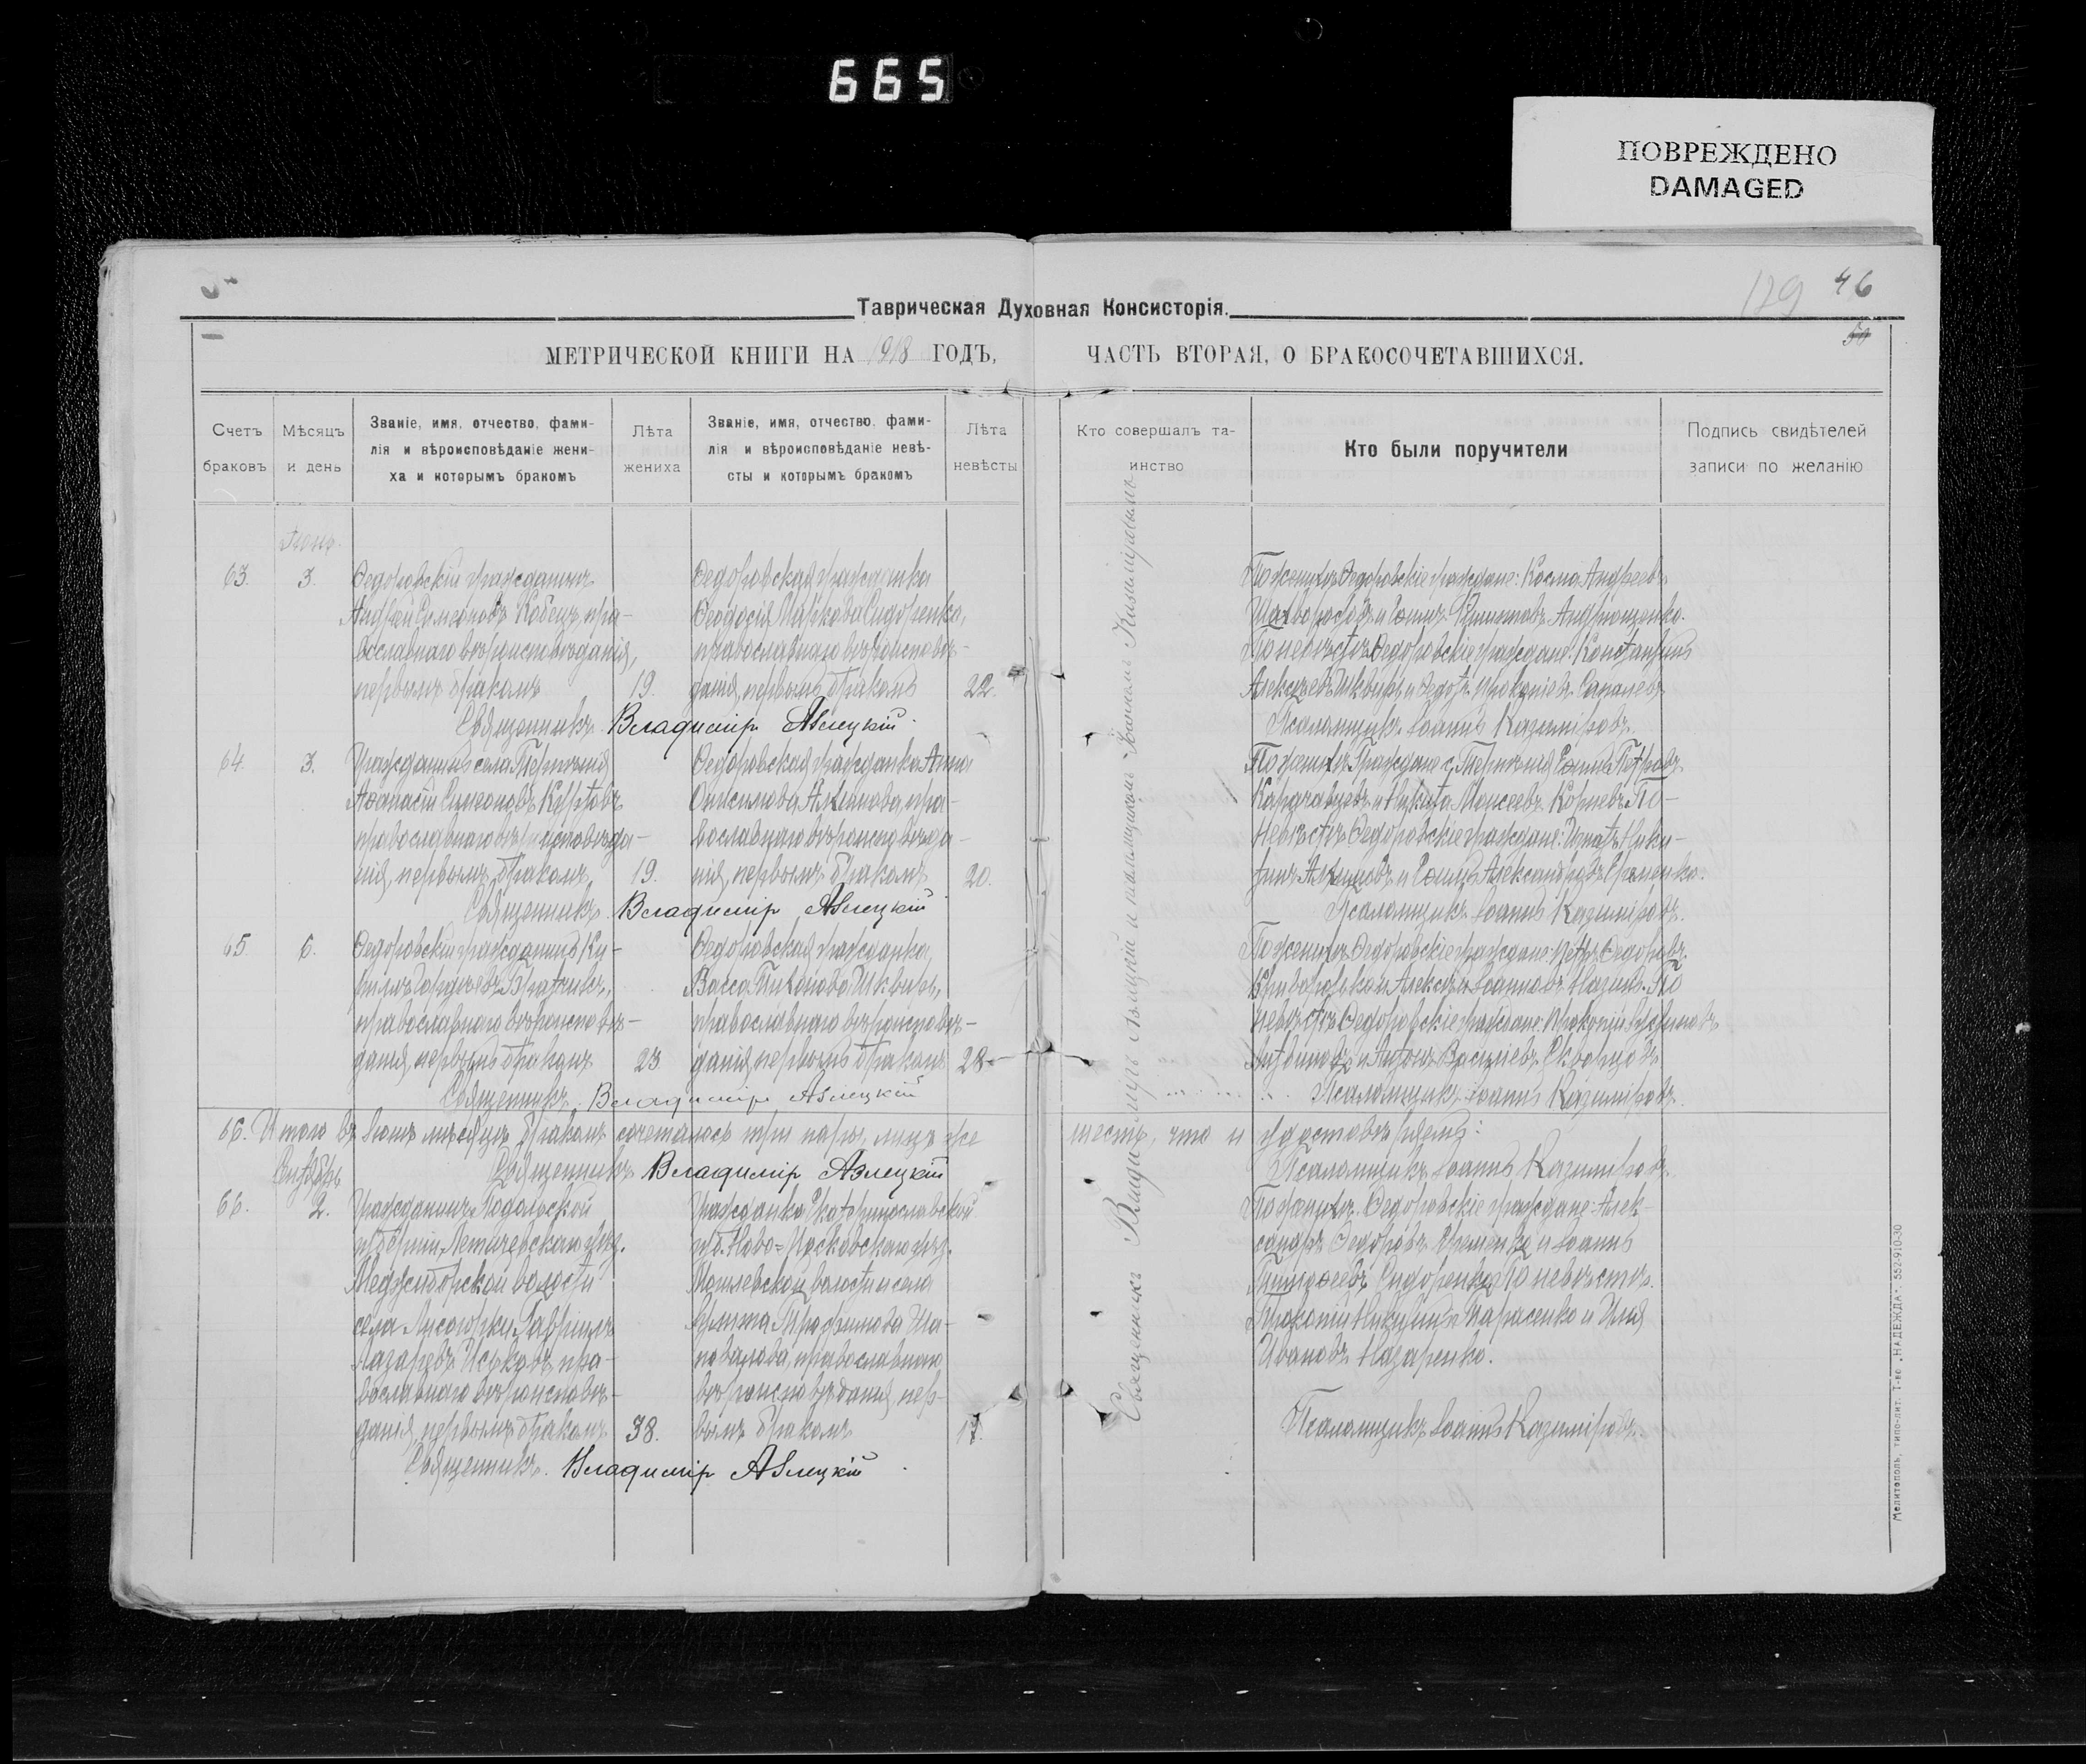 665
ПОВРЕЖДЕНО
DAMAGED
129 46
50
Таврическая Духовная Консисторія.
МЕТРИЧЕСКОЙ КНИГИ НА 1918 ГОДЪ, ЧАСТЬ ВТОРАЯ, О БРАКОСОЧЕТАВШИХСЯ.
Счетъ браковъ
Мѣсяцъ и день
Званіе, имя, отчество, фами-
лія и вѣроисповѣданіе жени-
ха и которымъ бракомъ
Лѣта
жениха
Званіе, имя, отчество, фами-
лія и вѣроисповѣданіе невѣ-
сты и которымъ бракомъ
Лѣта
невѣсты
Кто совершалъ та-
инство
Кто были поручители
Подпись свидѣтелей
записи по желанію
63. 3.
Ѳедоровскій гражданинъ
Андрей Симеоновъ Кобецъ, пра-
вославнаго вѣроисповѣданія,
первымъ бракомъ
19.
Ѳедоровская гражданка
Ѳеодосія Маркова Сидоренко,
православнаго вѣроисповѣ-
данія, первымъ бракомъ
22.
По женихѣ Ѳедоровскіе граждане: Косма Андреевъ
Андрющенко.
По невѣстѣ Ѳедоровскіе граждане: Константинъ
Алексѣевъ Шквыръ и Ѳедотъ Прокопіевъ
Священникъ Владиміръ Азлецкій
Псаломщикъ Іоаннъ Казиміровъ.
64. 3.
Гражданинъ села
Аѳанасій Симеоновъ Куртовъ
православнаго вѣроисповѣда-
нія, первымъ бракомъ
19.
Ѳедоровская гражданка Анна
пра-
вославнаго вѣроисповѣда-
нія, первымъ бракомъ
20.
По женихѣ граждане с. Петровъ
и Никита Моисеевъ Корневъ. По
невѣстѣ Ѳедоровскіе граждане: Игнатъ Ники-
тинъ и Александровъ Еременко.
Священникъ Владиміръ Азлецкій
Псаломщикъ Іоаннъ Казиміровъ.
65 6.
Ѳедоровскій гражданинъ Ки-
риллъ
православнаго вѣроисповѣ-
данія, первымъ бракомъ
23
Ѳедоровская гражданка
Васса Тихонова Шквыръ,
православнаго вѣроисповѣ-
данія, первымъ бракомъ
28
По женихѣ Ѳедоровскіе граждане: Петръ Ѳедоровъ
Криворотько и Алексѣй Іоанновъ По
невѣстѣ Ѳедоровскіе граждане: Прокопій
и Антонъ Василіевъ Скворцовъ
Священникъ Владиміръ Азлецкій
Псаломщикъ Іоаннъ Казиміровъ.
Итого въ Іюнѣ мѣсяцѣ бракомъ сочеталось три пары, лицъ же шесть, что и удостовѣряемъ:
Священникъ Владиміръ Азлецкій
Псаломщикъ Іоаннъ Казиміровъ.
Октябрь
66. 2.
Гражданинъ Подольской
губерніи Летичевскаго уѣз.
Меджибожской волости
села Лысогорки Гавріилъ
Лазаревъ Иськовъ, пра-
вославнаго вѣроисповѣ-
данія, первымъ бракомъ
38.
Гражданка Екатеринославской
губ. Ново-Московскаго уѣз.
волости и села
Трофимова Ша-
повалова, православнаго
вѣроисповѣданія, пер-
вымъ бракомъ
17.
По женихѣ Ѳедоровскіе граждане: Алек-
сандръ Ѳедоровъ Еременко и Іоаннъ
Тимоѳеевъ Сидоренко. По невѣстѣ:
Прокопій Никитинъ Тарасенко и Илія
Ивановъ Назаренко.
Священникъ Владиміръ Азлецкій
Псаломщикъ Іоаннъ Казиміровъ.
Священникъ Владиміръ Азлецкій и псаломщикъ Іоаннъ Казиміровымъ
Мелитополь, типо-лит. Т-во „НАДЕЖДА“. 552-910-30